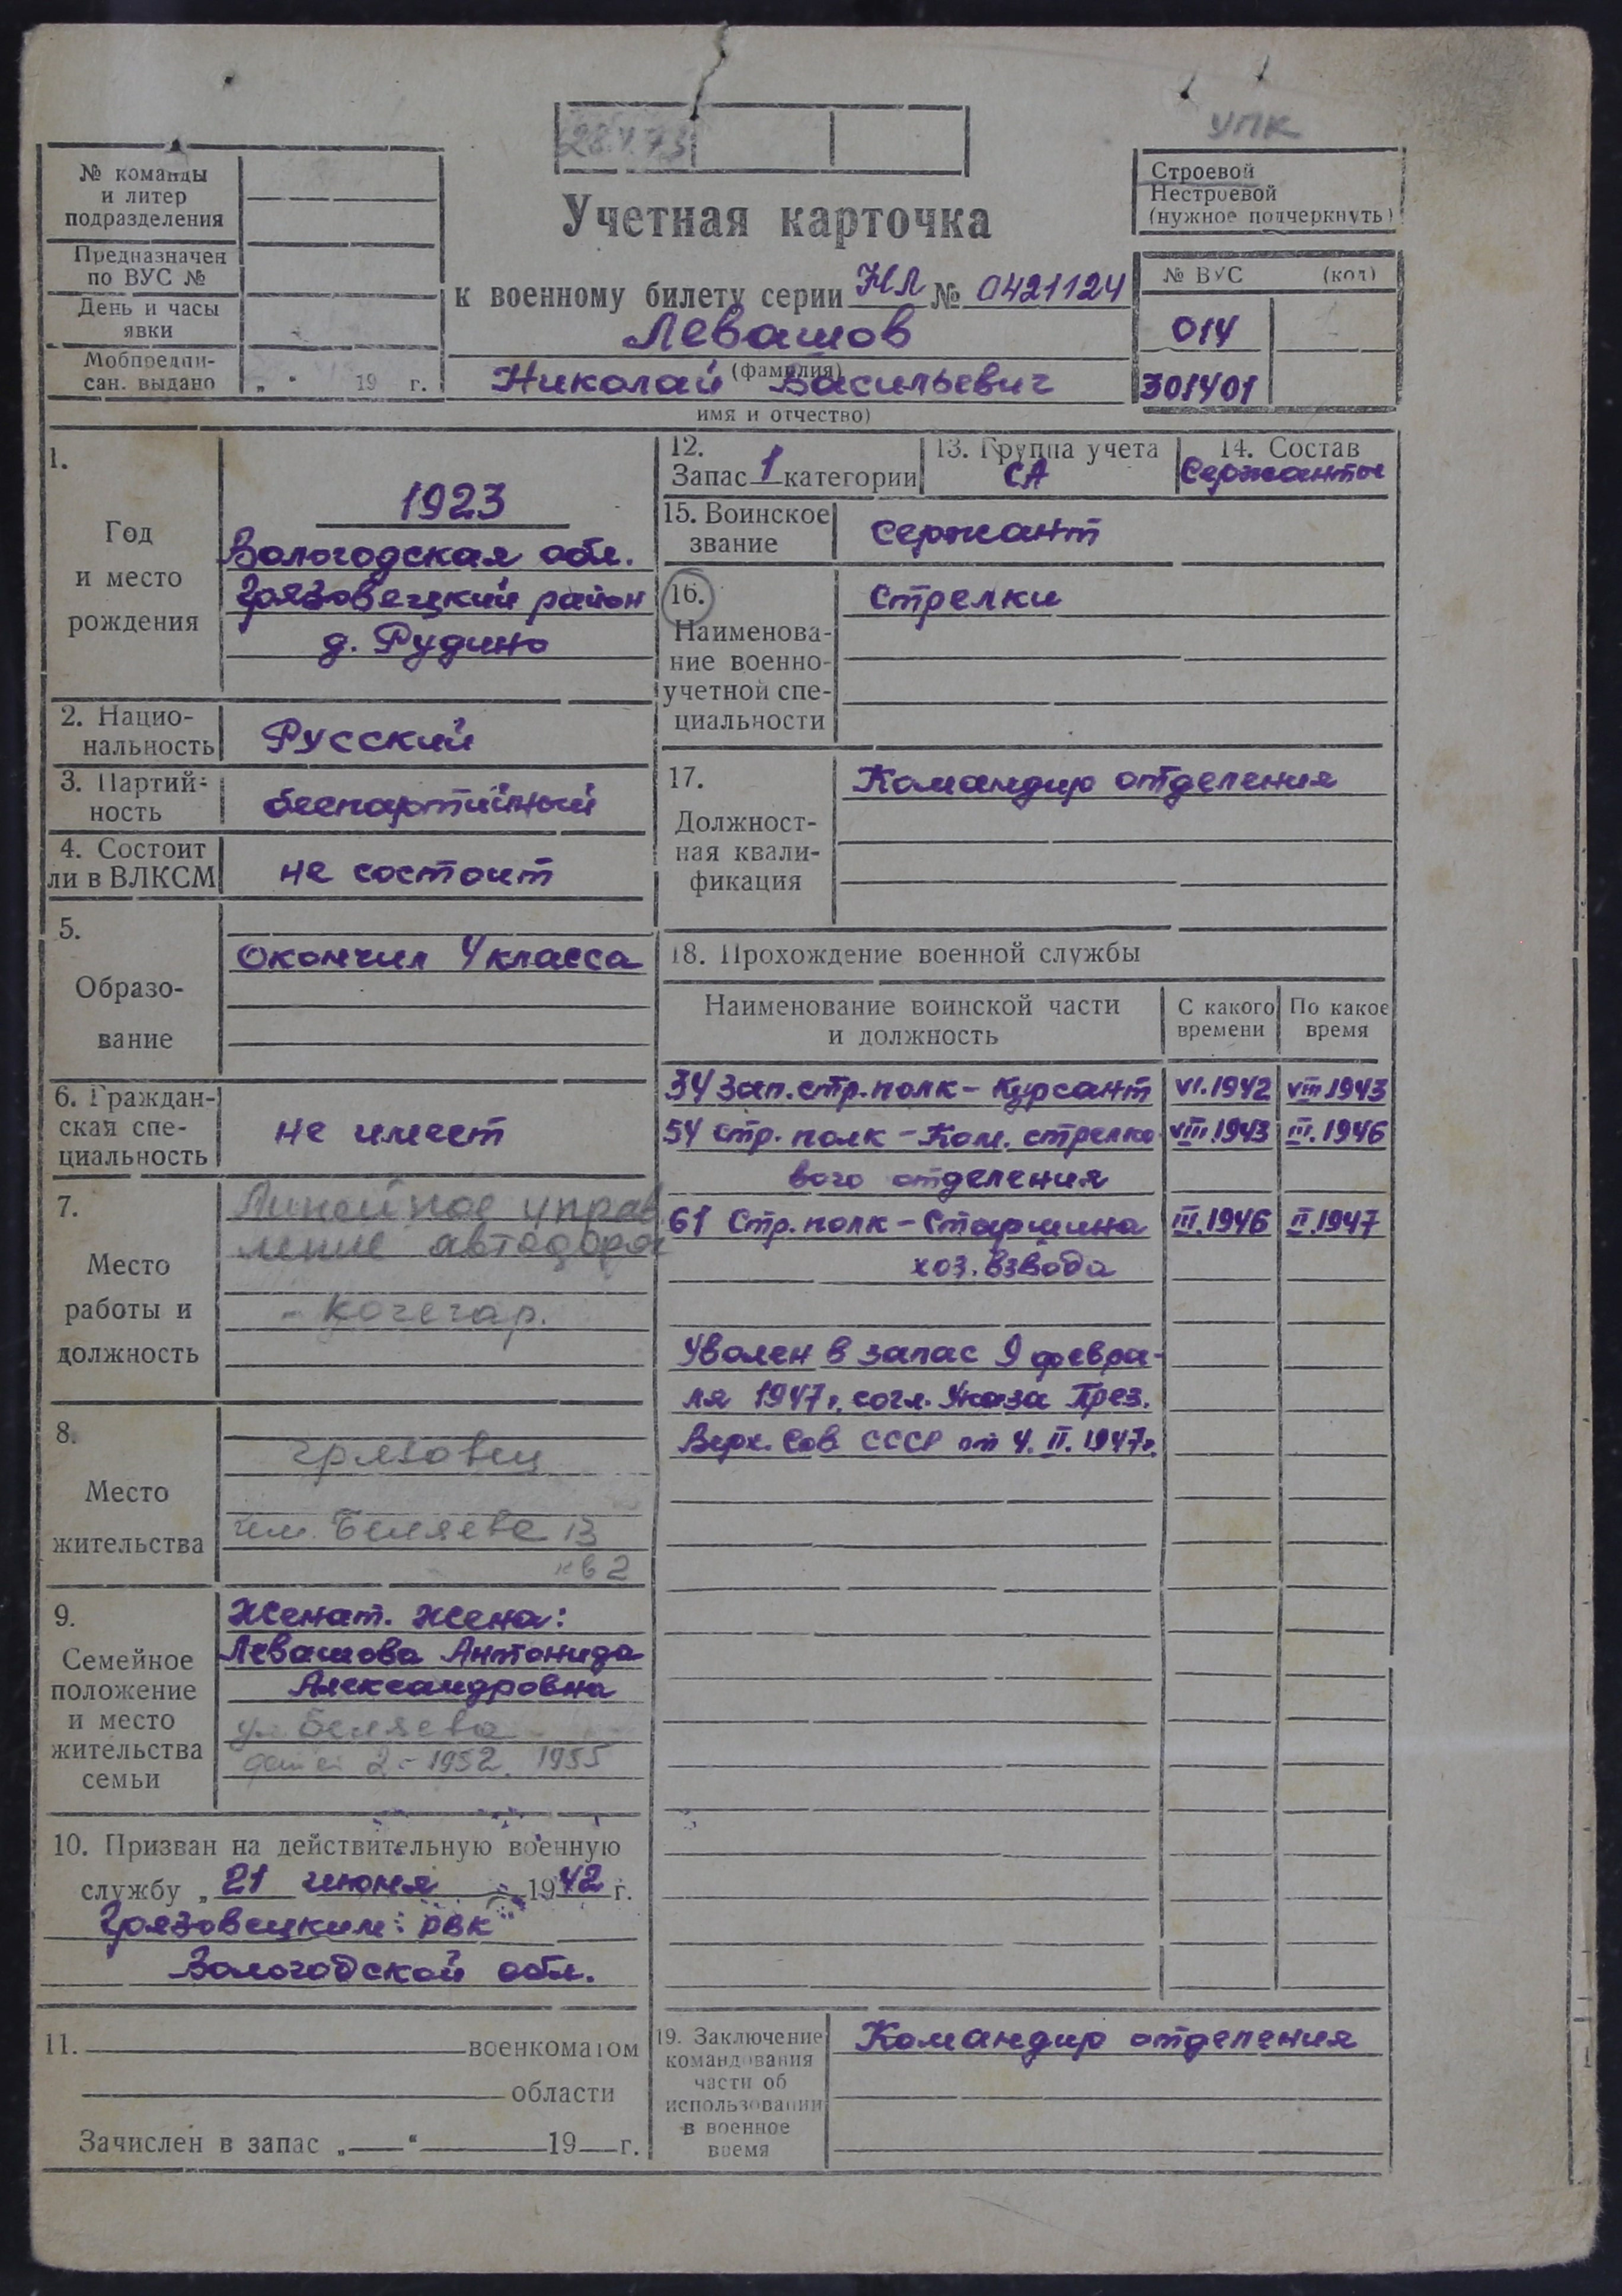 28.V.73
УПК
№ команды
и литер
подразделения
Предназначен
по ВУС №
День и часы
явки
Мобпредпи-
сан. выдано „ " 19 г.
Учетная карточка
к военному билету серии НЛ № 0421124
Левашов
(фамилия)
Николай Васильевич
имя и отчество)
Строевой
Нестроевой
(нужное подчеркнуть)
№ ВУС (код)
014
301401
1.
Год
и место
рождения
1923
Вологодская обл.
Грязовецкий район
д. Рудино
2. Нацио-
нальность
Русский
3. Партий-
ность
беспартийный
4. Состоит
ли в ВЛКСМ
не состоит
5.
Образо-
вание
Окончил 4 класса
6. Граждан-
ская спе-
циальность
не имеет
7.
Место
работы и
должность
Линейное управ
ление автодорог
- кочегар.
8.
Место
жительства
Грязовец
Беляева 13
кв 2
9.
Семейное
положение
и место
жительства
семьи
Женат. Жена:
Левашова Антонида
Александровна
ул. Беляева
детей 2 - 1952. 1955
10. Призван на действительную военную
службу „ 21 июня 1942 г.
Грязовецким РВК
Вологодской обл.
11. военкоматом
области
Зачислен в запас „ “ 19 г.
12.
Запас 1 категории
13. Группа учета
СА
14. Состав
Сержанты
15. Воинское
звание
сержант
16.
Наименова-
ние военно-
учетной спе-
циальности
Стрелки
17.
Должност-
ная квали-
фикация
Командир отделения
18. Прохождение военной службы
Наименование воинской части
и должность
С какого
времени
По какое
время
34 Зап. стр. полк - Курсант VI.1942 VIII.1943
54 стр. полк - Ком. стрелко- VIII.1943 III.1946
вого отделения
61 Стр. полк - Старшина III.1946 II.1947
хоз. взвода
Уволен в запас 9 февра-
ля 1947г. согл. Указа През.
Верх. Сов СССР от 4. II. 1947г.
19. Заключение
командования
части об
использовании
в военное
время
Командир отделения